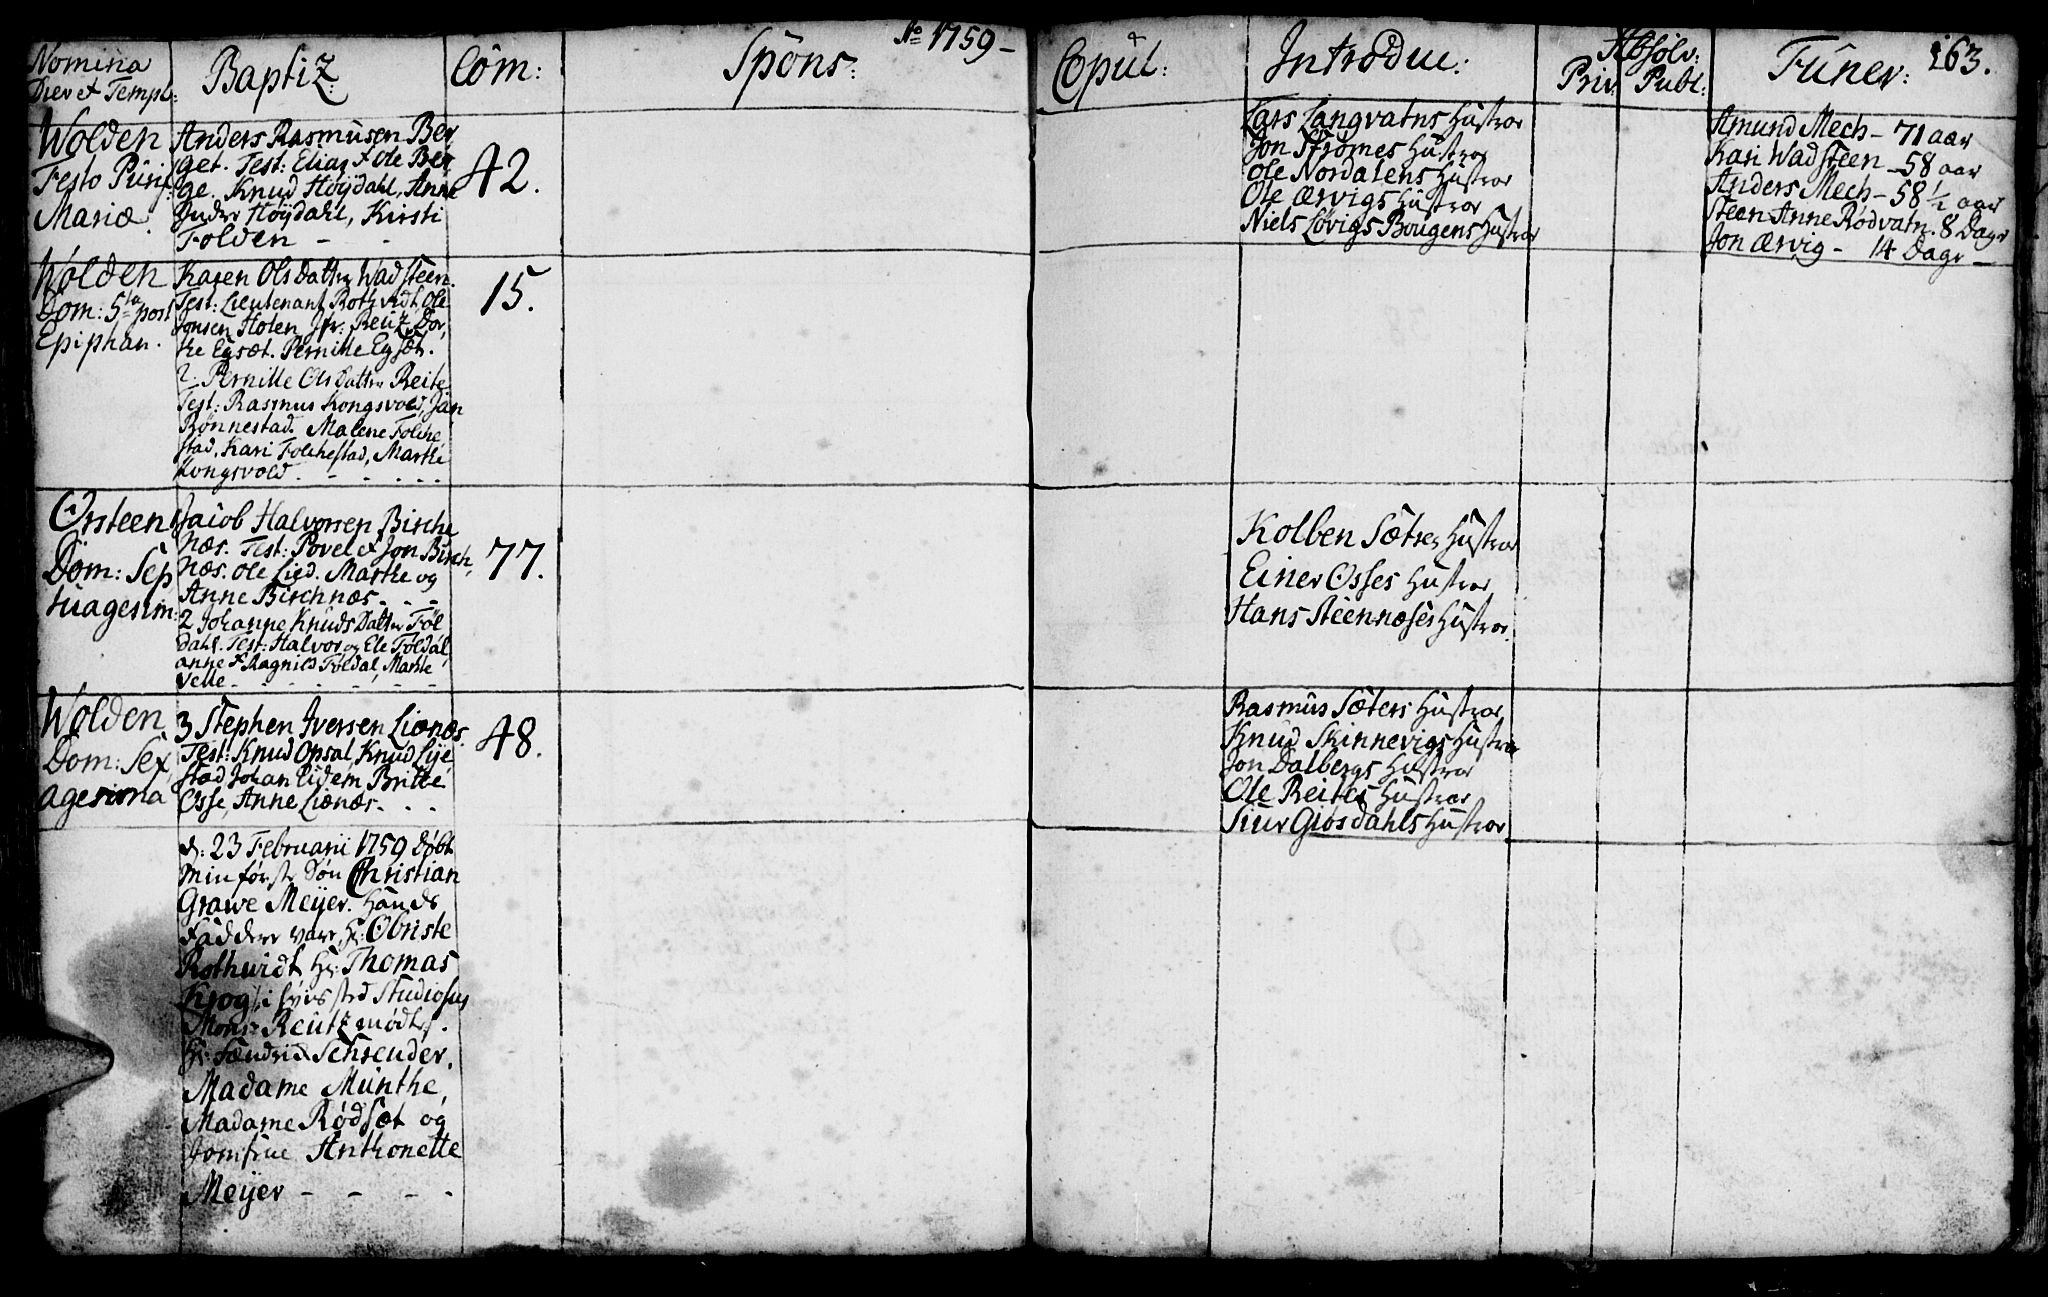 Ao 1759 -
163.
Nomina
Dier et Templ:
Baptiz:
Com:
Spons:
Copul:
Introduc:
Absolv:
Priv. Publ:
Funer:
Wolden
Festo Purif:
Mariæ.
Anders Rasmusen Ber
get. Test: Elias & Ole Ber
ge. Knud Höijdahl, Anne
Höijdahl, Kirsti
Folden - -
42.
Lars Langvatns Hustroe
Jon Strömes Hustroe
Ole Nordalens Hustroe
Ole Ærvigs Hustroe
Niels Lövigs Bougens Hustroe
Amund Mech - 71 aar
Kari Wadsteen - 58 aar
Anders Mech - 58 1/2 aar
Steen Anne Rödvatn. 8 Dage
Jon Ærvig - 14 Dage -
Wolden
Dom: 5ta post
Epiphan.
Karen OlsDatter Wadsteen.
Test: Lieutenant Rothvidt, Ole
Jonsen Holen, Jfr: Reutz, Dor,
the Egsæt. Pernille Egsæt.
2. Pernille OlsDatter Reite
Test: Rasmus Kongsvold, Jan
Rönnestad. Malene Folche
stad, Kari Folchestad, Marthe
Kongsvold. - - - - -
15.
Örsteen
Dom: Sep
tuagesim:
Jacob Halvorsen Birche
næs. Test: Povel et Jon Birch,
næs. Ole Lied. Marthe og
Anne Birchnæs. - -
2 Johanne KnudsDatter Föl
dahl. Test: Halvor og Ele Földal,
anne & Ragnild Földal, Marthe
Velle - - - - - -
77.
Kolben Sætres Hustroe
Einer Osses Hustroe
Hans Steennæses Hustroe
Wolden
Dom: Sex
agesima
3 Stephen Iversen Lianæs.
Test: Knud Opsal, Knud Lije
stad Johan Eidem Britthe
Osse, Anne Lianæs. - -
48.
Rasmus Sæters Hustroe
Knud Skinnevigs Hustroe
Jon Dalbergs Hustroe
Ole Reites Hustroe
Siur Giösdahls Hustroe
d: 23 Februarii 1759 Döbt
min förste Sön Christian
Grawe Meijer. Hands
Faddere vare, Hr: Obriste
Rothwidt Hr: Thomas
Krog, i hvis sted Studiosus
Mons: Reutz mödte.
Hr: Schreuder.
Madame Munthe,
Madame Rödsæt og
Jomfrue Anthonette
Meijer - - - -